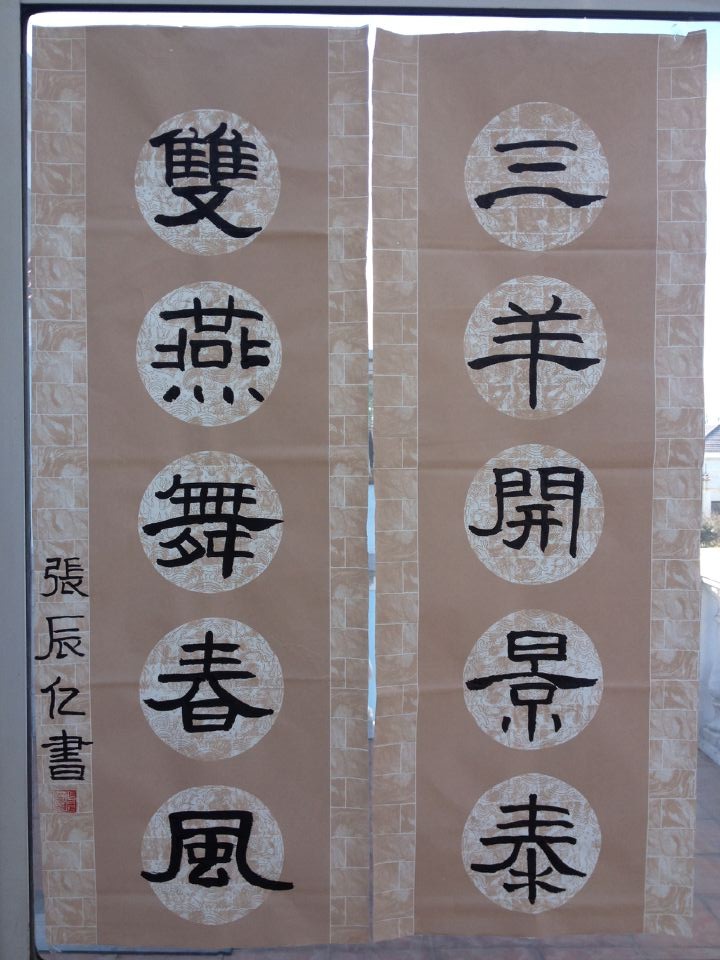 三羊開景泰
雙燕舞春風
張辰仁書